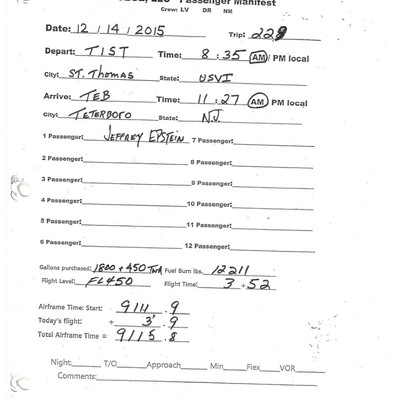 LLC Passenger Manifest
Crew: LV DR NM
Date: 12 / 14 / 2015 Trip: 229
Depart: TIST Time: 8:35 AM/ PM local
City: ST. THOMAS State: USVI
Arrive: TEB Time: 11:27 AM PM local
City: TETERBORO State: N.J.
1 Passenger: JEFFREY EPSTEIN 7 Passenger:
2 Passenger: 8 Passenger:
3 Passenger: 9 Passenger:
4 Passenger: 10 Passenger:
5 Passenger: 11 Passenger:
6 Passenger: 12 Passenger:
Gallons purchased: 1800 + 450 Fuel Burn lbs. 12211
Flight Level: FL450 Flight Time: 3 + 52
Airframe Time: Start: 9111 .9
Today's flight: + 3 .9
Total Airframe Time = 9115 .8
Night: T/O Approach Min Flex VOR
Comments: